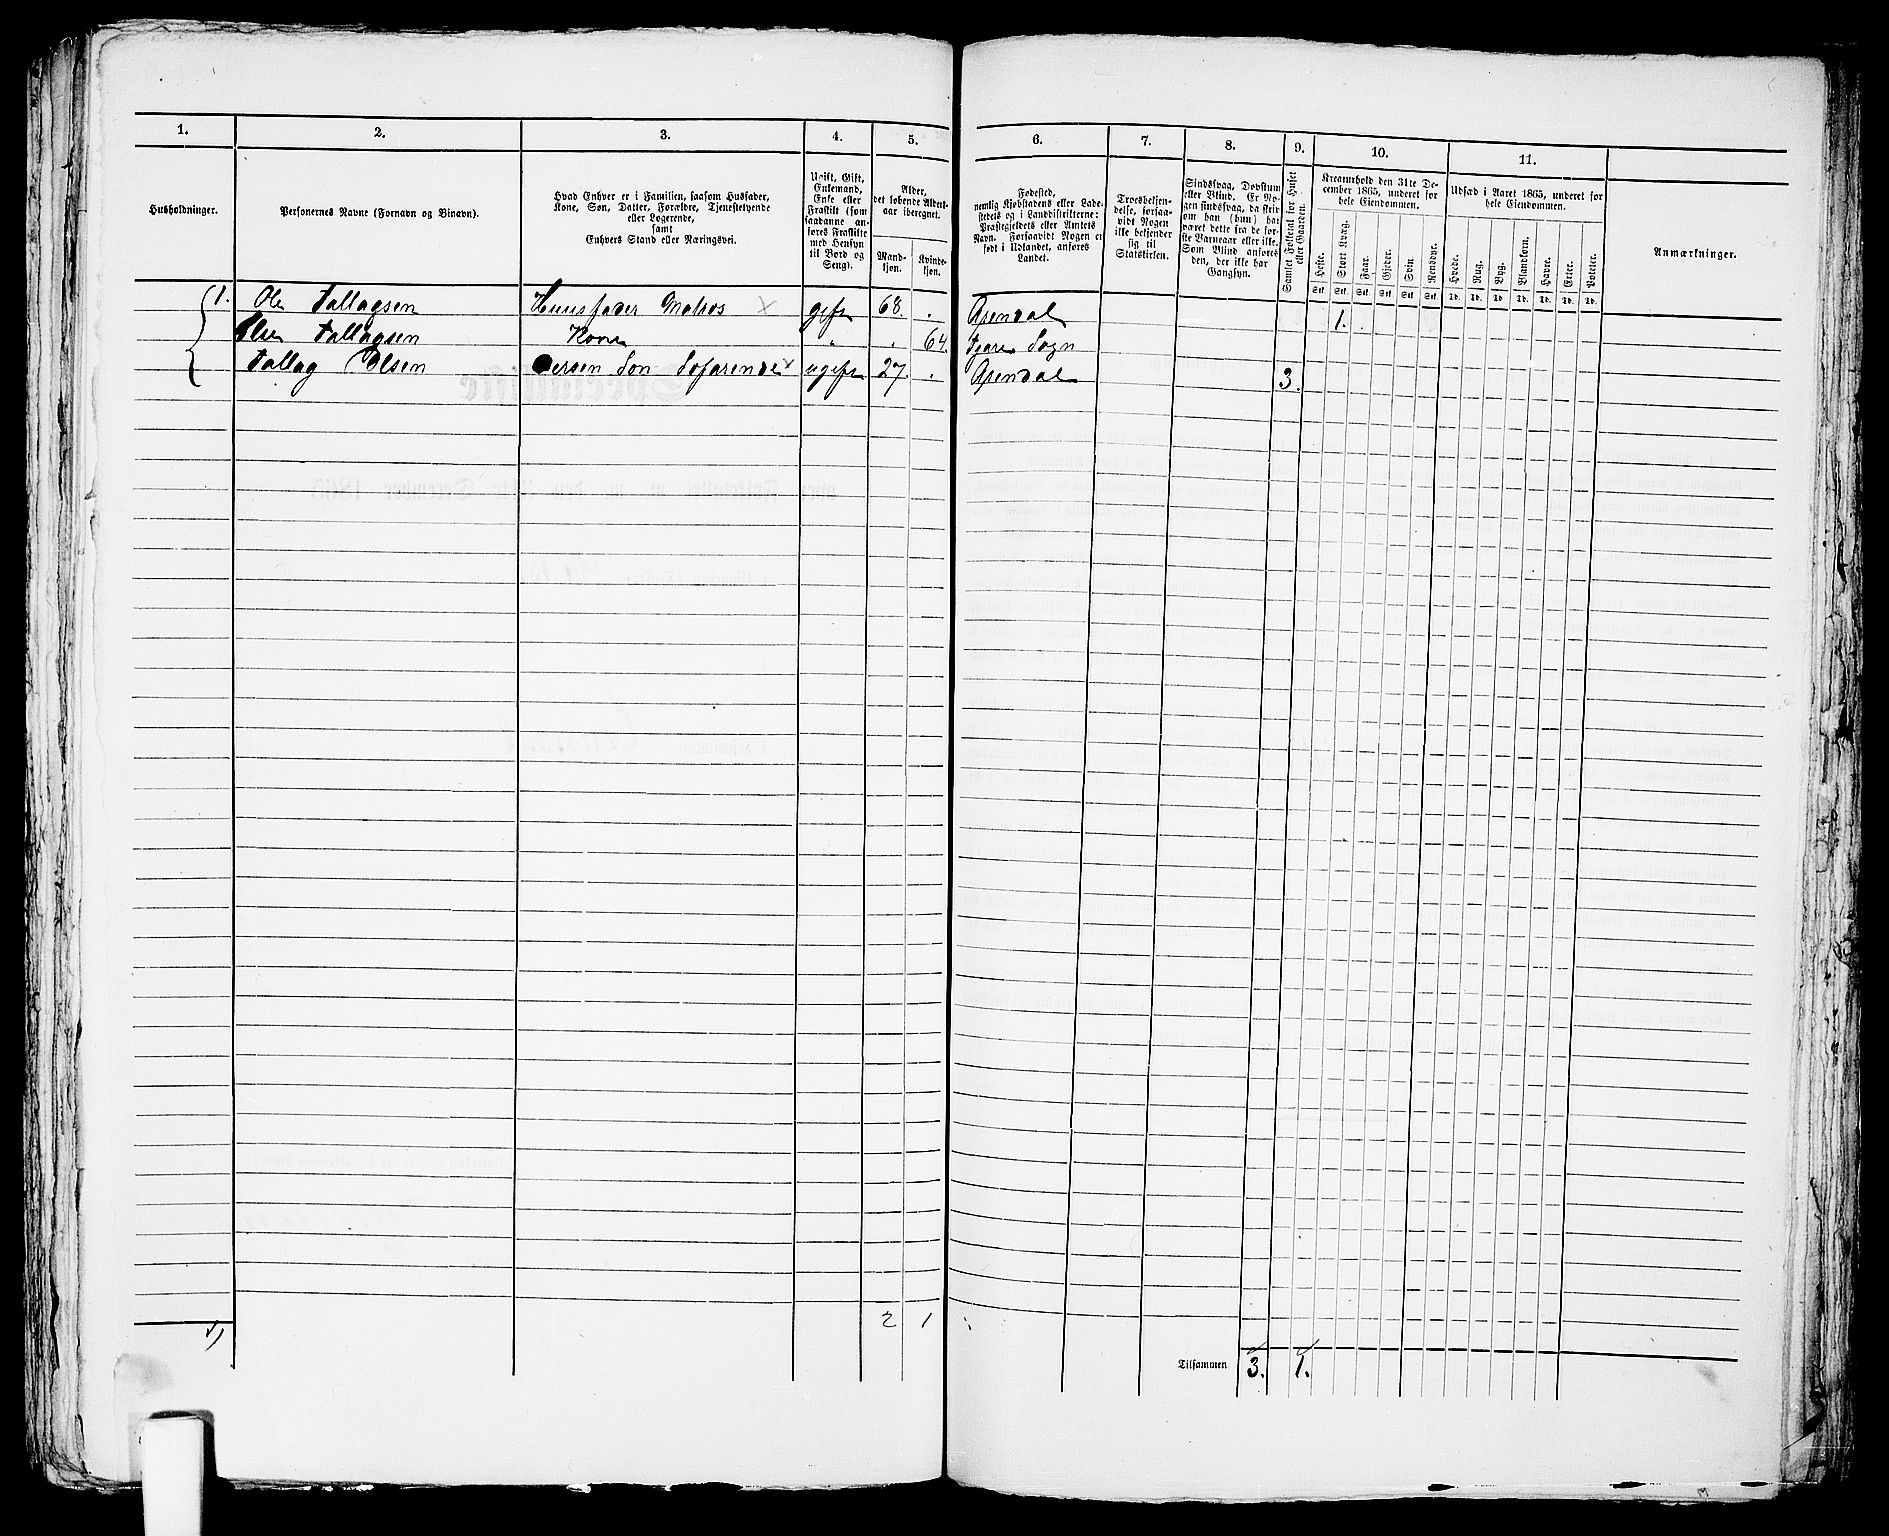 1. 2. 3. 4. 5. 6. 7. 8. 9. 10. 11.
Husholdninger.
Personernes Navne (Fornavn og Binavn).
Hvad Enhver er i Familien, saasom Husfader,
Kone, Søn, Datter, Forældre, Tjenestetyende
eller Logerende,
samt
Enhvers Stand eller Næringsvei.
Ugift, Gift,
Enkemand,
Enke eller
Fraskilt (som
saadanne an-
føres Fraskilte
med Hensyn
til Bord og
Seng).
Alder,
det løbende Alders-
aar iberegnet.
Mand-
kjøn.
Kvinde-
kjøn.
Fødested,
nemlig Kjøbstadens eller Lade-
stedets og i Landdistrikterne:
Præstegjeldets eller Amtets
Navn. Forsaavidt Nogen er
født i Udlandet, anføres
Landet.
Troesbekjen-
delse, forsaa-
vidt Nogen
ikke bekjender
sig til
Statskirken.
Sindssvag, Døvstum
eller Blind. Er No-
gen sindssvag, da skri-
ves om han (hun) har
været dette fra de før-
ste Barneaar eller ikke.
Som Blind anføres
den, der ikke har
Gangsyn.
Samlet Folketal for Huset
eller Gaarden.
Kreaturhold den 31te De-
cember 1865, underet for
hele Eiendommen.
Heste. Stort Kvæg. Faar. Gjeder. Svin. Rensdyr.
Stk. Stk. Stk. Stk. Stk. Stk.
Udsæd i Aaret 1865, underet for
hele Eiendommen.
Hvede. Rug. Byg. Blandkorn. Havre. Erter. Poteter.
Td. Td. Td. Td. Td. Td. Td.
Anmærkninger.
1. Ole Tallagsen Huusfader Matros gift 68. Arendal 1.
Else Tallagsen Kone " 64. Sogn
Tallag Olsen Deres Søn Søfarende ugift 27. Arendal 3.
2 1
Tilsammen 3. 1.